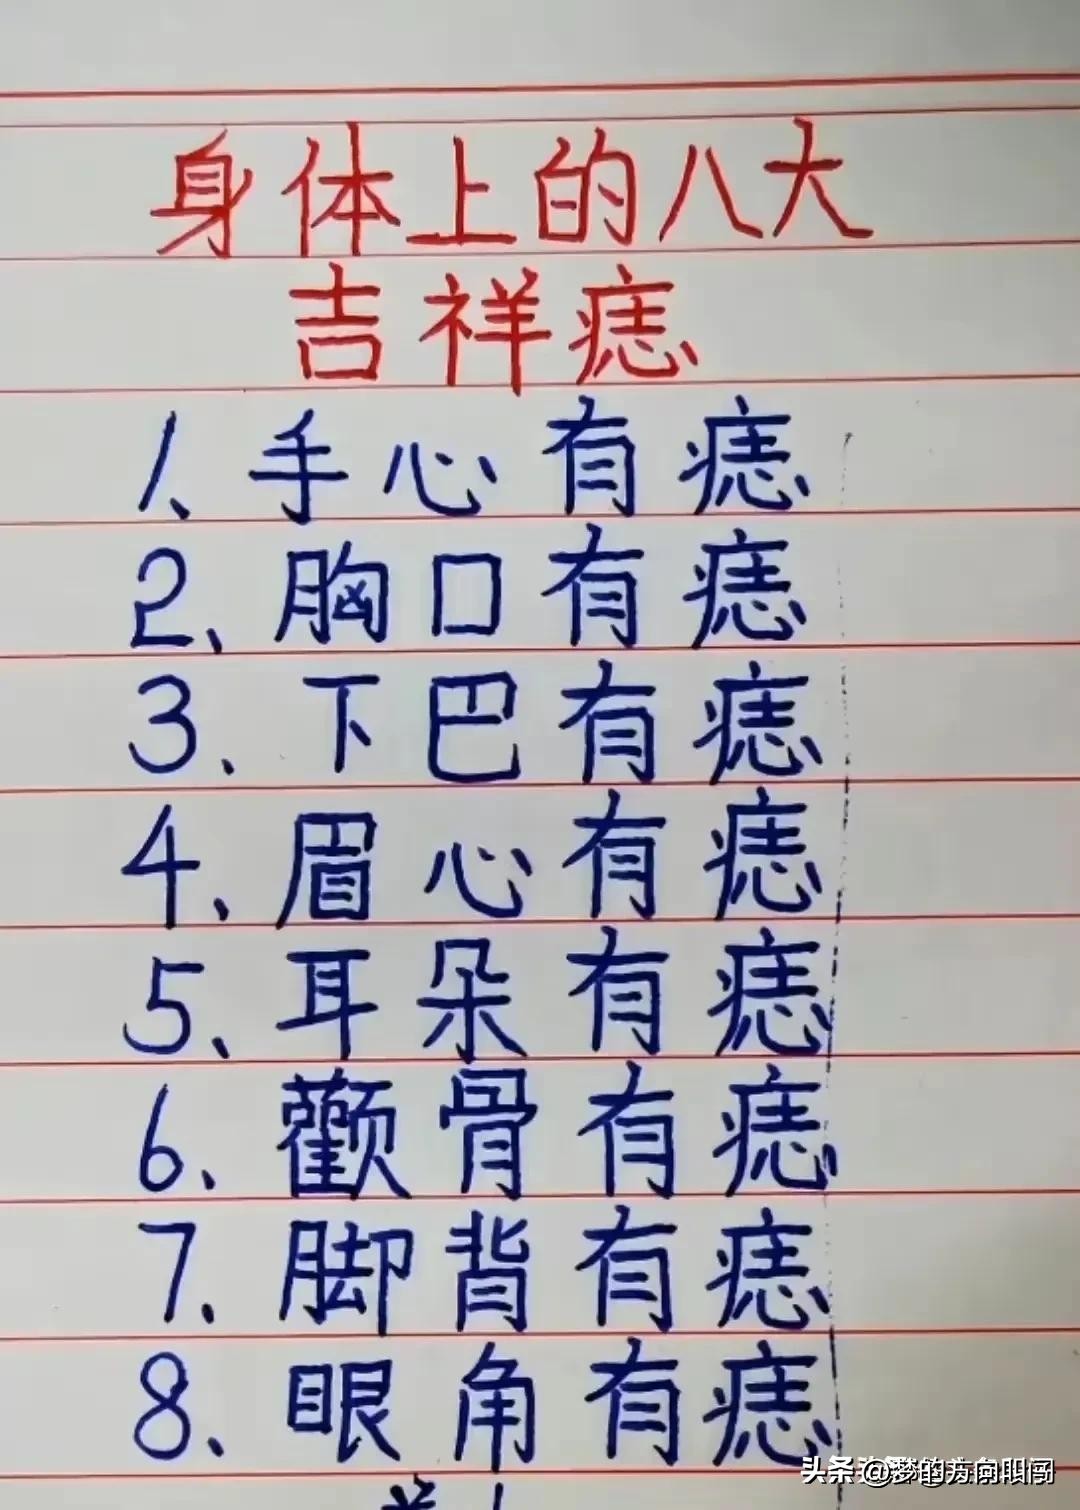 身体上的八大
吉祥痣
1、手心有痣
2、胸口有痣
3、下巴有痣
4、眉心有痣
5、耳朵有痣
6、颧骨有痣
7、脚背有痣
8、眼角有痣
头条